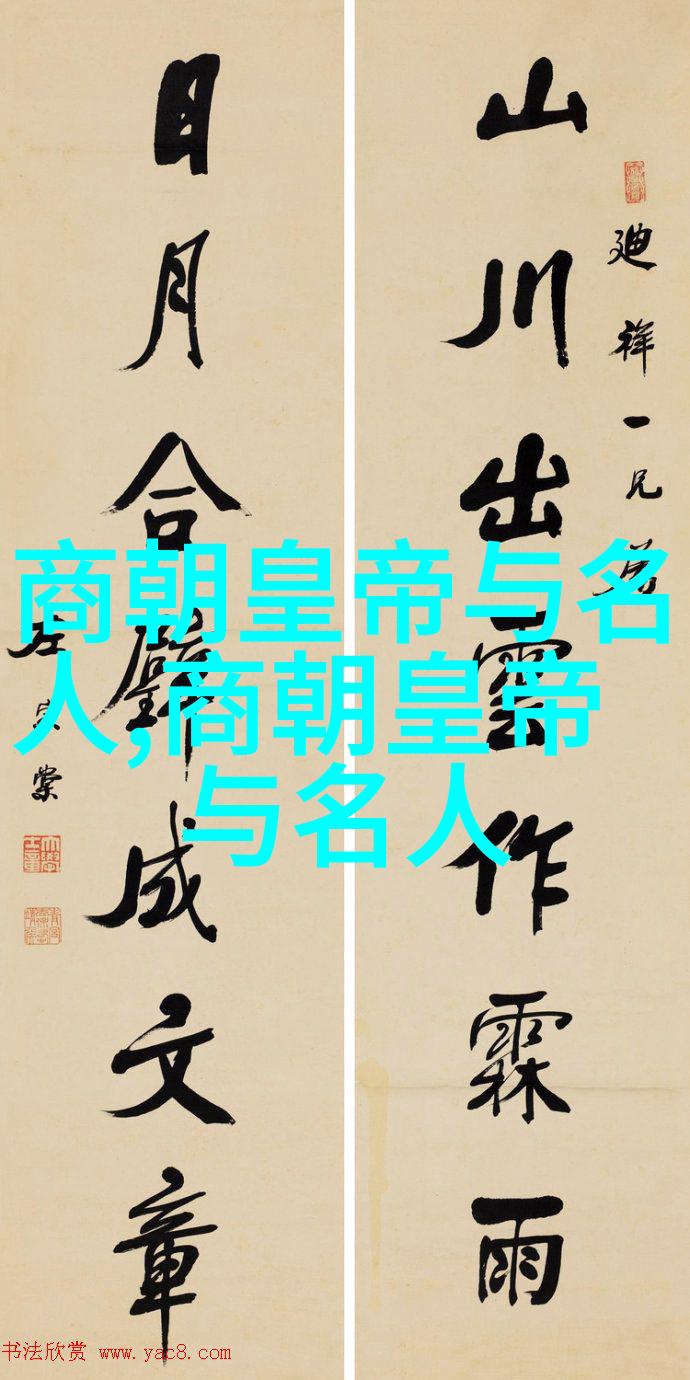 廸祥一兄
山川出雲作霖雨
日月合璧成文章
左宗棠
商朝皇帝与名
人,商朝皇帝
与名人
书法欣赏 www.yac8.com